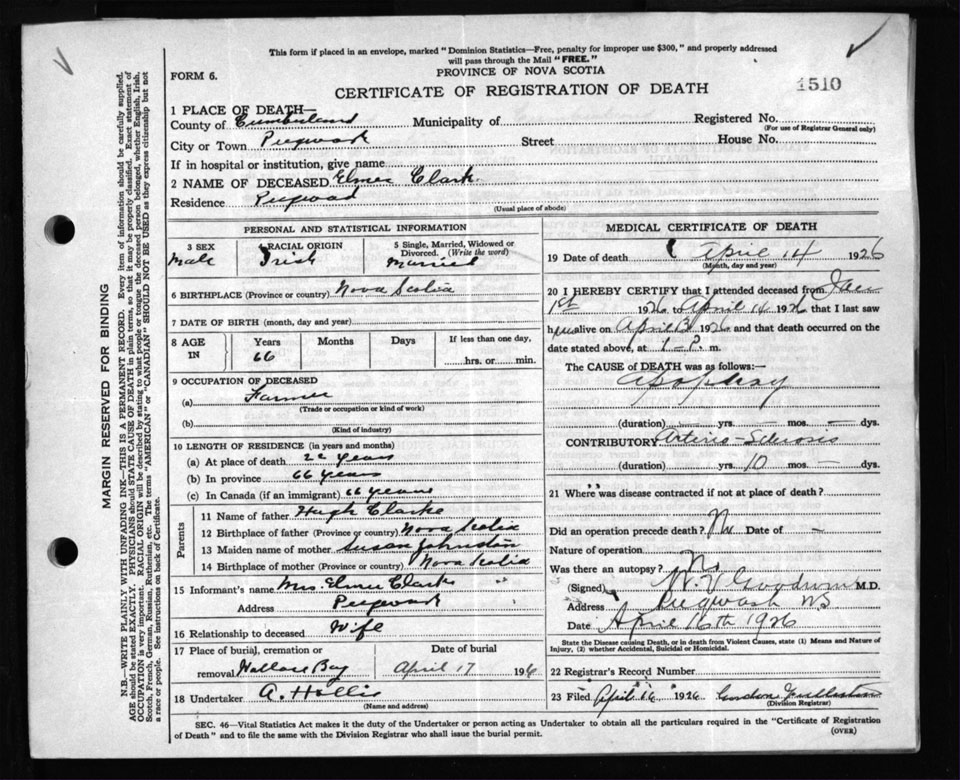 This form if placed in an envelope, marked "Dominion Statistics—Free, penalty for improper use $300," and properly addressed
will pass through the Mail "FREE."
FORM 6.
PROVINCE OF NOVA SCOTIA
1510
CERTIFICATE OF REGISTRATION OF DEATH
1 PLACE OF DEATH—
County of Cumberland Municipality of Registered No.
(For use of Registrar General only)
City or Town Pugwash Street House No.
If in hospital or institution, give name
2 NAME OF DECEASED Elmer Clark
Residence Pugwash
(Usual place of abode)
PERSONAL AND STATISTICAL INFORMATION
3 SEX
Male
4 RACIAL ORIGIN
Irish
5 Single, Married, Widowed or
Divorced. (Write the word)
Married
6 BIRTHPLACE (Province or country) Nova Scotia
7 DATE OF BIRTH (month, day and year)
8 AGE
IN
Years
66
Months
Days
If less than one day,
hrs. or min.
9 OCCUPATION OF DECEASED
(a) Farmer
(Trade or occupation or kind of work)
(b)
(Kind of industry)
10 LENGTH OF RESIDENCE (in years and months)
(a) At place of death 22 years
(b) In province 66 years
(c) In Canada (if an immigrant) 66 years
Parents
11 Name of father Hugh Clarke
12 Birthplace of father (Province or country) Nova Scotia
13 Maiden name of mother Susan Johnston
14 Birthplace of mother (Province or country) Nova Scotia
15 Informant's name Mrs Elmer Clarke
Address Pugwash
16 Relationship to deceased Wife
17 Place of burial, cremation or
removal Wallace Bay
Date of burial
April 17 1926
18 Undertaker A. Hollis
(Name and address)
MEDICAL CERTIFICATE OF DEATH
19 Date of death April 14 1926
(Month, day and year)
20 I HEREBY CERTIFY that I attended deceased from
1st 1926 to April 14 1926 that I last saw
him alive on April 13 1926 and that death occurred on
date stated above, at 1-P. m.
The CAUSE of DEATH was as follows:—
Apoplexy
(duration) yrs. — mos. — dys.
CONTRIBUTORY Arterio-Sclerosis
(duration) yrs. 10 mos. — dys.
21 Where was disease contracted if not at place of death?
Did an operation precede death? No Date of —
Nature of operation
Was there an autopsy? No
(Signed) Goodwin M.D.
Address Pugwash NS
Date April 16th 1926
State the Disease causing Death, or in death from Violent Causes, state (1) Means and Nature of
Injury, (2) whether Accidental, Suicidal or Homicidal.
22 Registrar's Record Number
23 Filed April 16 1926 Gordon
(Division Registrar)
SEC. 46—Vital Statistics Act makes it the duty of the Undertaker or person acting as Undertaker to obtain all the particulars required in the "Certificate of Registration
of Death" and to file the same with the Division Registrar who shall issue the burial permit.
(OVER)
MARGIN RESERVED FOR BINDING
N.B.—WRITE PLAINLY WITH UNFADING INK—THIS IS A PERMANENT RECORD. Every item of information should be carefully supplied.
AGE should be stated EXACTLY. PHYSICIANS should STATE CAUSE OF DEATH in plain terms, so that it may be properly classified. Exact statement of
OCCUPATION is very important. RACIAL ORIGIN will be described by stating to what people or tongue the deceased person belonged, whether English, Irish,
Scotch, French, German, Russian, Ruthenian, etc. The terms "AMERICAN" or "CANADIAN" SHOULD NOT BE USED as they express citizenship but not
a race or people. See instructions on back of Certificate.